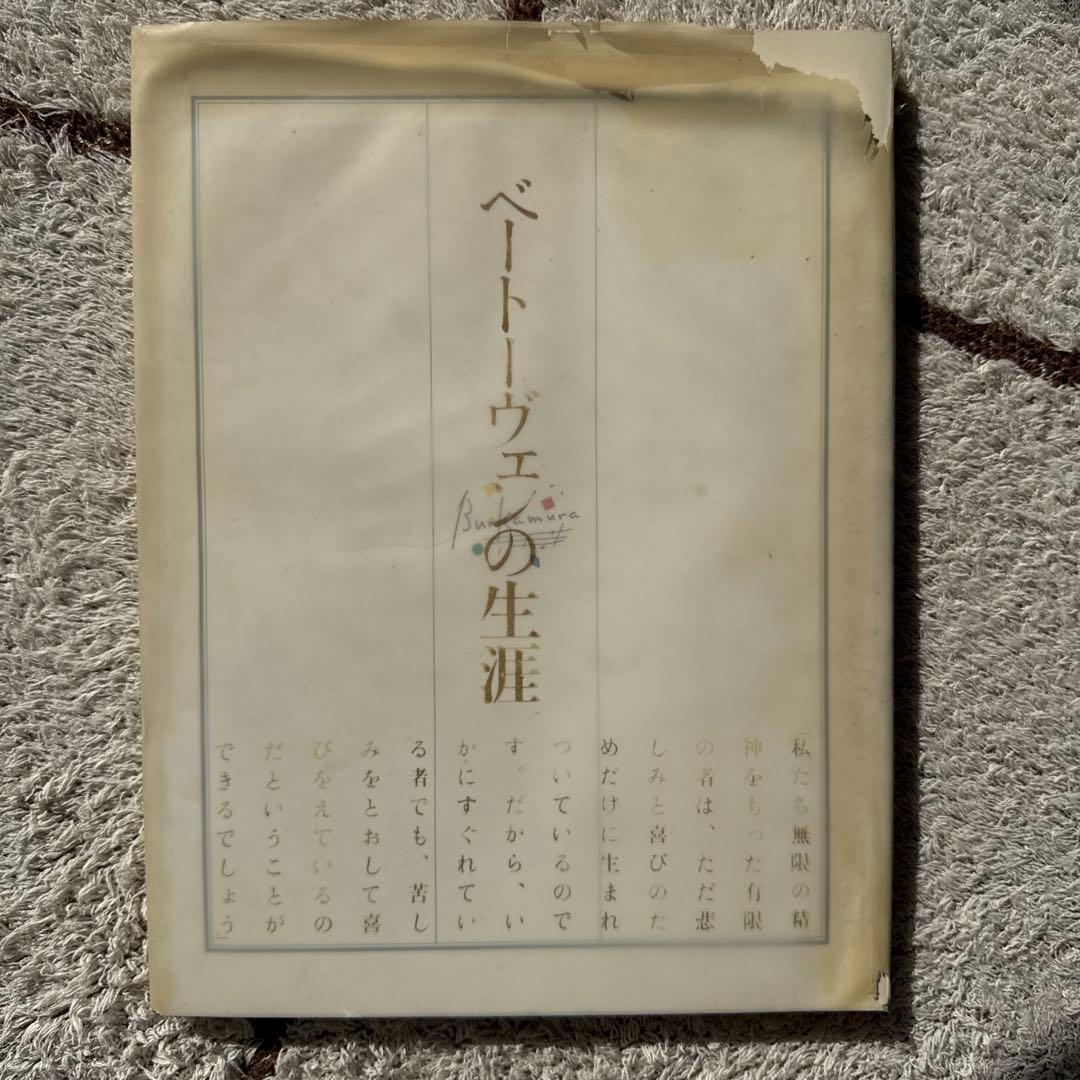 ベートーヴェンの生涯
Bunkamura
「私たち無限の精
神をもった有限
の者は、ただ悲
しみと喜びのた
めだけに生まれ
ついているので
す。だから、い
かにすぐれてい
る者でも、苦し
みをとおして喜
びをえているの
だということが
できるでしょう」